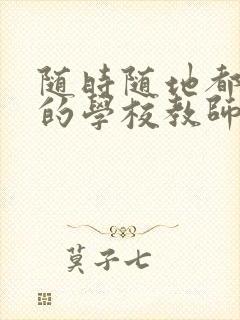 随時随地都
的學校教師
莫子七